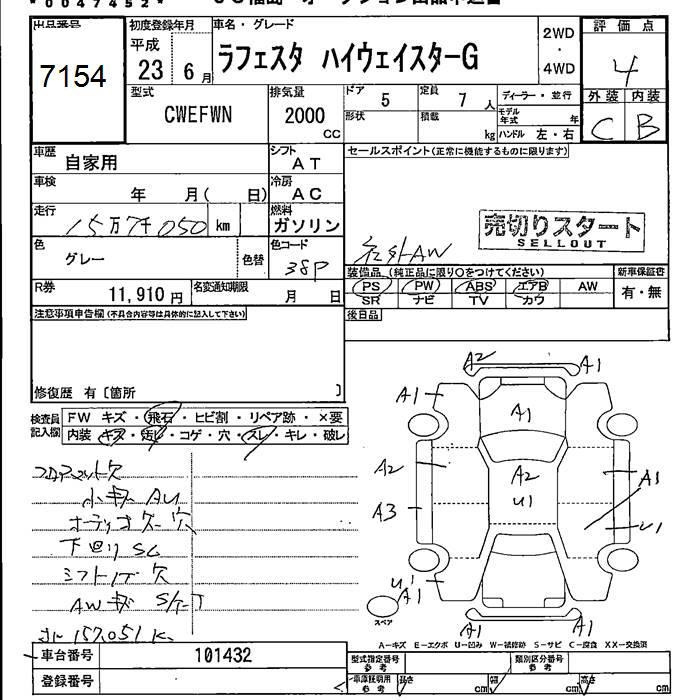 *0047452*
出品番号
7154
初度登録年月
平成
23 6 月
車名・グレード
ラフェスタ ハイウェイスターG
2WD
・
4WD
評価点
4
外装 内装
C B
型式
CWEFWN
排気量
2000
CC
ドア 5
定員 7 人
形状
積載 kg
ディーラー・並行
モデル年式 年
ハンドル 左・右
車歴 自家用
シフト AT
セールスポイント(正常に機能するものに限ります)
車検 年 月( 日)
冷房 AC
走行 15万7千050 km
燃料 ガソリン
売切りスタート
SELLOUT
社外AW
色 グレー
色替
色コード 38P
装備品(純正品に限り○をつけてください)
新車保証書
有・無
PS PW ABS エアB AW
SR ナビ TV カワ
R券 11,910 円
名変通知期限 月 日
後日品
注意事項申告欄(不具合内容等は具体的に記入して下さい)
修復歴 有〔箇所 〕
検査員記入欄
FW キズ・飛石・ヒビ割・リペア跡・×要
内装 キズ・汚レ・コゲ・穴・スレ・キレ・破レ
フロアマット欠
小キズ AU
下回り SC
AWキズ
157,051 K
A2 A1
A1 A1
A1
A2 A2 A1
U1
A3 U1
U1
A1
A1 A1
スペア
A-キズ E-エクボ U-凹み W-補修跡 S-サビ C-腐食 XX-交換済
車台番号 101432
登録番号
型式指定番号
参考
類別区分番号
参考
車庫証明用
参考
長さ cm
幅 cm
高さ cm